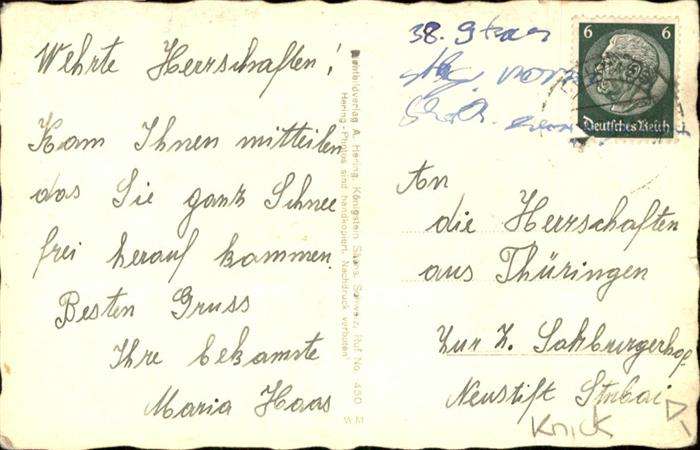 Wehrte Herrschaften!
Kann Ihnen mitteilen
das Sie ganz Schnee
frei herauf kommen.
Besten Gruss
Ihre bekannte
Maria Haas
Hering-Photos sind handkopiert. Nachdruck verboten!
A. Hering, Königstein Ruf No. 450
WM
38.
6 6
Deutsches Reich
An
die Herrschaften
aus Thüringen
Zur Z. Salzburgerhof
Neustift Stubai
Knick